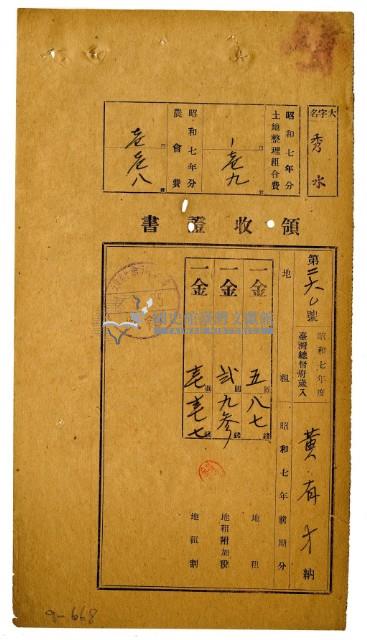 大字名
秀水
昭和七年分
土地整理組合費
壱九
昭和七年分
農會費
壱壱八
領收證書
第二六〇號
昭和七年度
臺灣總督府歲入
黃有才 納
地租 昭和七年前期分
一金 五八七 地租
一金 貳九參 地租附加稅
一金 壱壱七 地租割
國史館臺灣文獻館